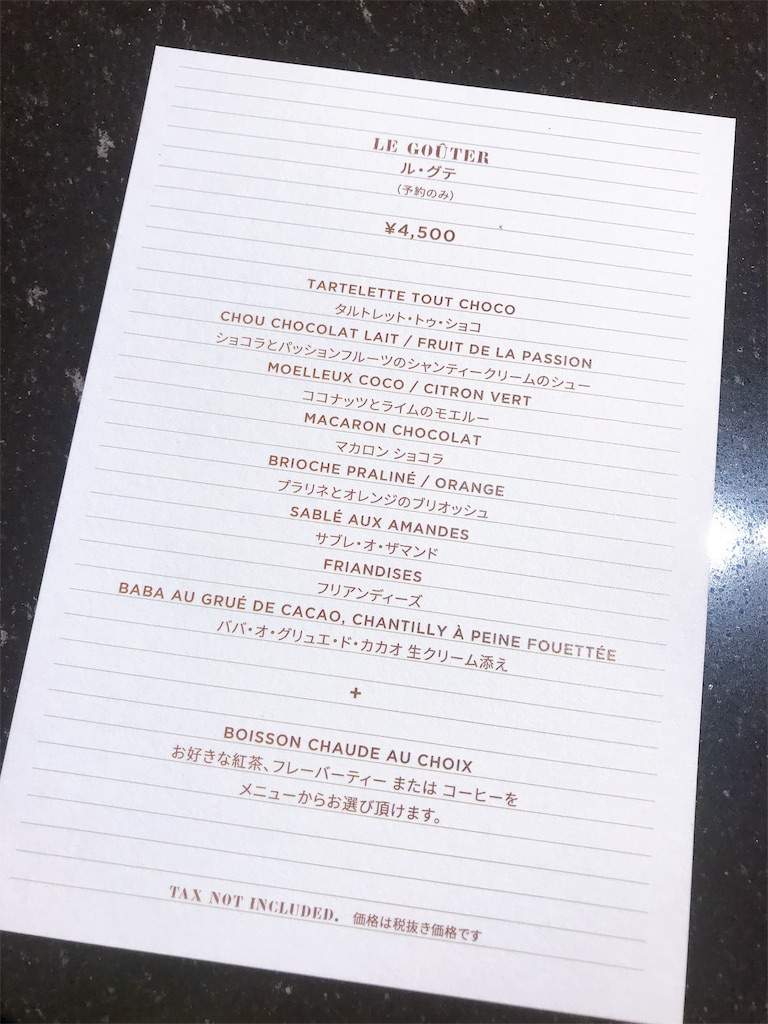 LE GOÛTER
ル・グテ
(予約のみ)
¥4,500
TARTELETTE TOUT CHOCO
タルトレット・トゥ・ショコ
CHOU CHOCOLAT LAIT / FRUIT DE LA PASSION
ショコラとパッションフルーツのシャンティークリームのシュー
MOELLEUX COCO / CITRON VERT
ココナッツとライムのモエルー
MACARON CHOCOLAT
マカロン ショコラ
BRIOCHE PRALINÉ / ORANGE
プラリネとオレンジのブリオッシュ
SABLÉ AUX AMANDES
サブレ・オ・ザマンド
FRIANDISES
フリアンディーズ
BABA AU GRUÉ DE CACAO, CHANTILLY À PEINE FOUETTÉE
ババ・オ・グリュエ・ド・カカオ 生クリーム添え
+
BOISSON CHAUDE AU CHOIX
お好きな紅茶、フレーバーティー または コーヒーを
メニューからお選び頂けます。
TAX NOT INCLUDED. 価格は税抜き価格です